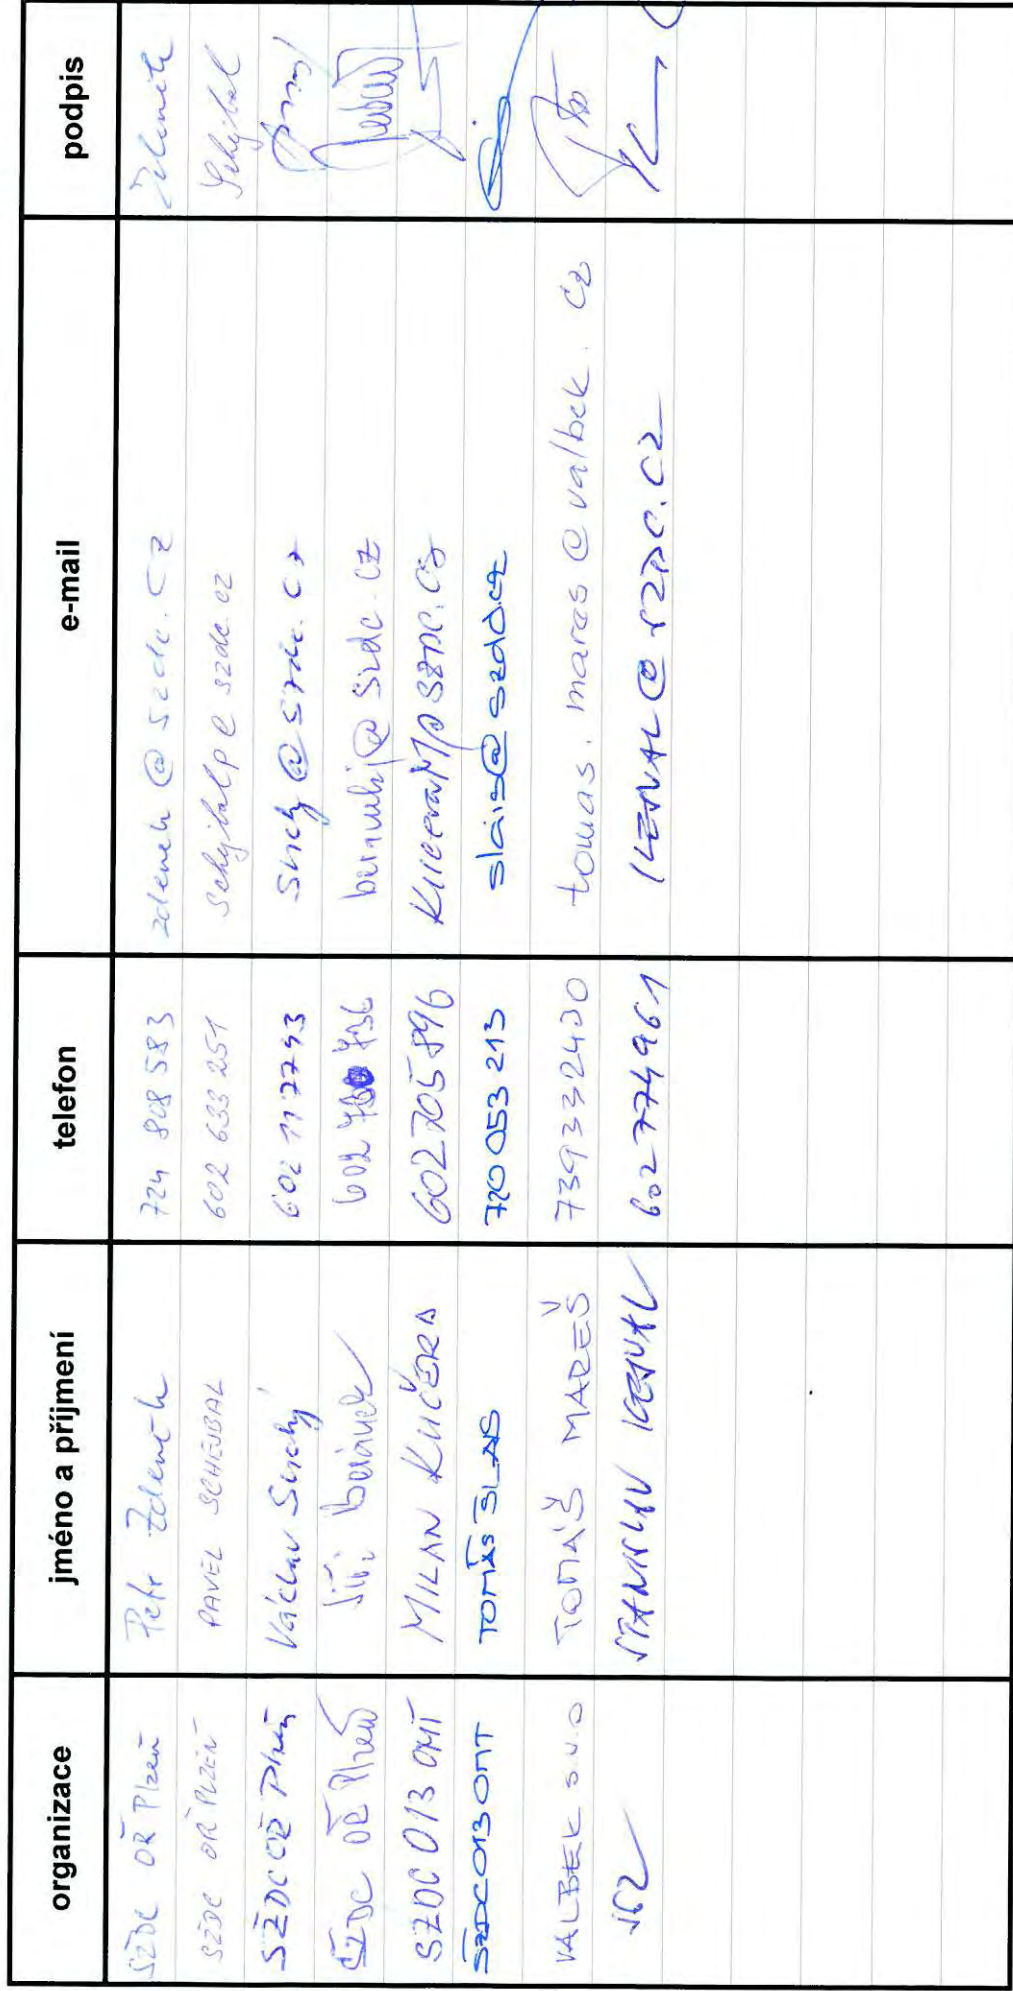 organizace jméno a příjmení telefon e-mail podpis
SŽDC OŘ Plzeň Petr Zdeněk 724 808 583 zdenek@szdc.cz Zdeněk
SŽDC OŘ PLZEŇ PAVEL SCHEJBAL 602 633 251 Schejbalp@szdc.cz Schejbal
SŽDC OŘ Plzeň Václav 602 117743 @szdc.cz
SŽDC OŘ Plzeň Jiří 602 736 @szdc.cz
SŽDC O13 OMT MILAN KUČERA 602705896 KuceraM@SZDC.CZ
SŽDC O13 OMT TOMÁŠ SLAIS 720 053 213 slais@szdc.cz
VALBEK s.r.o TOMÁŠ MAREŠ 739332430 tomas.mares@valbek.cz
STANISLAV 602774961 @SZDC.CZ